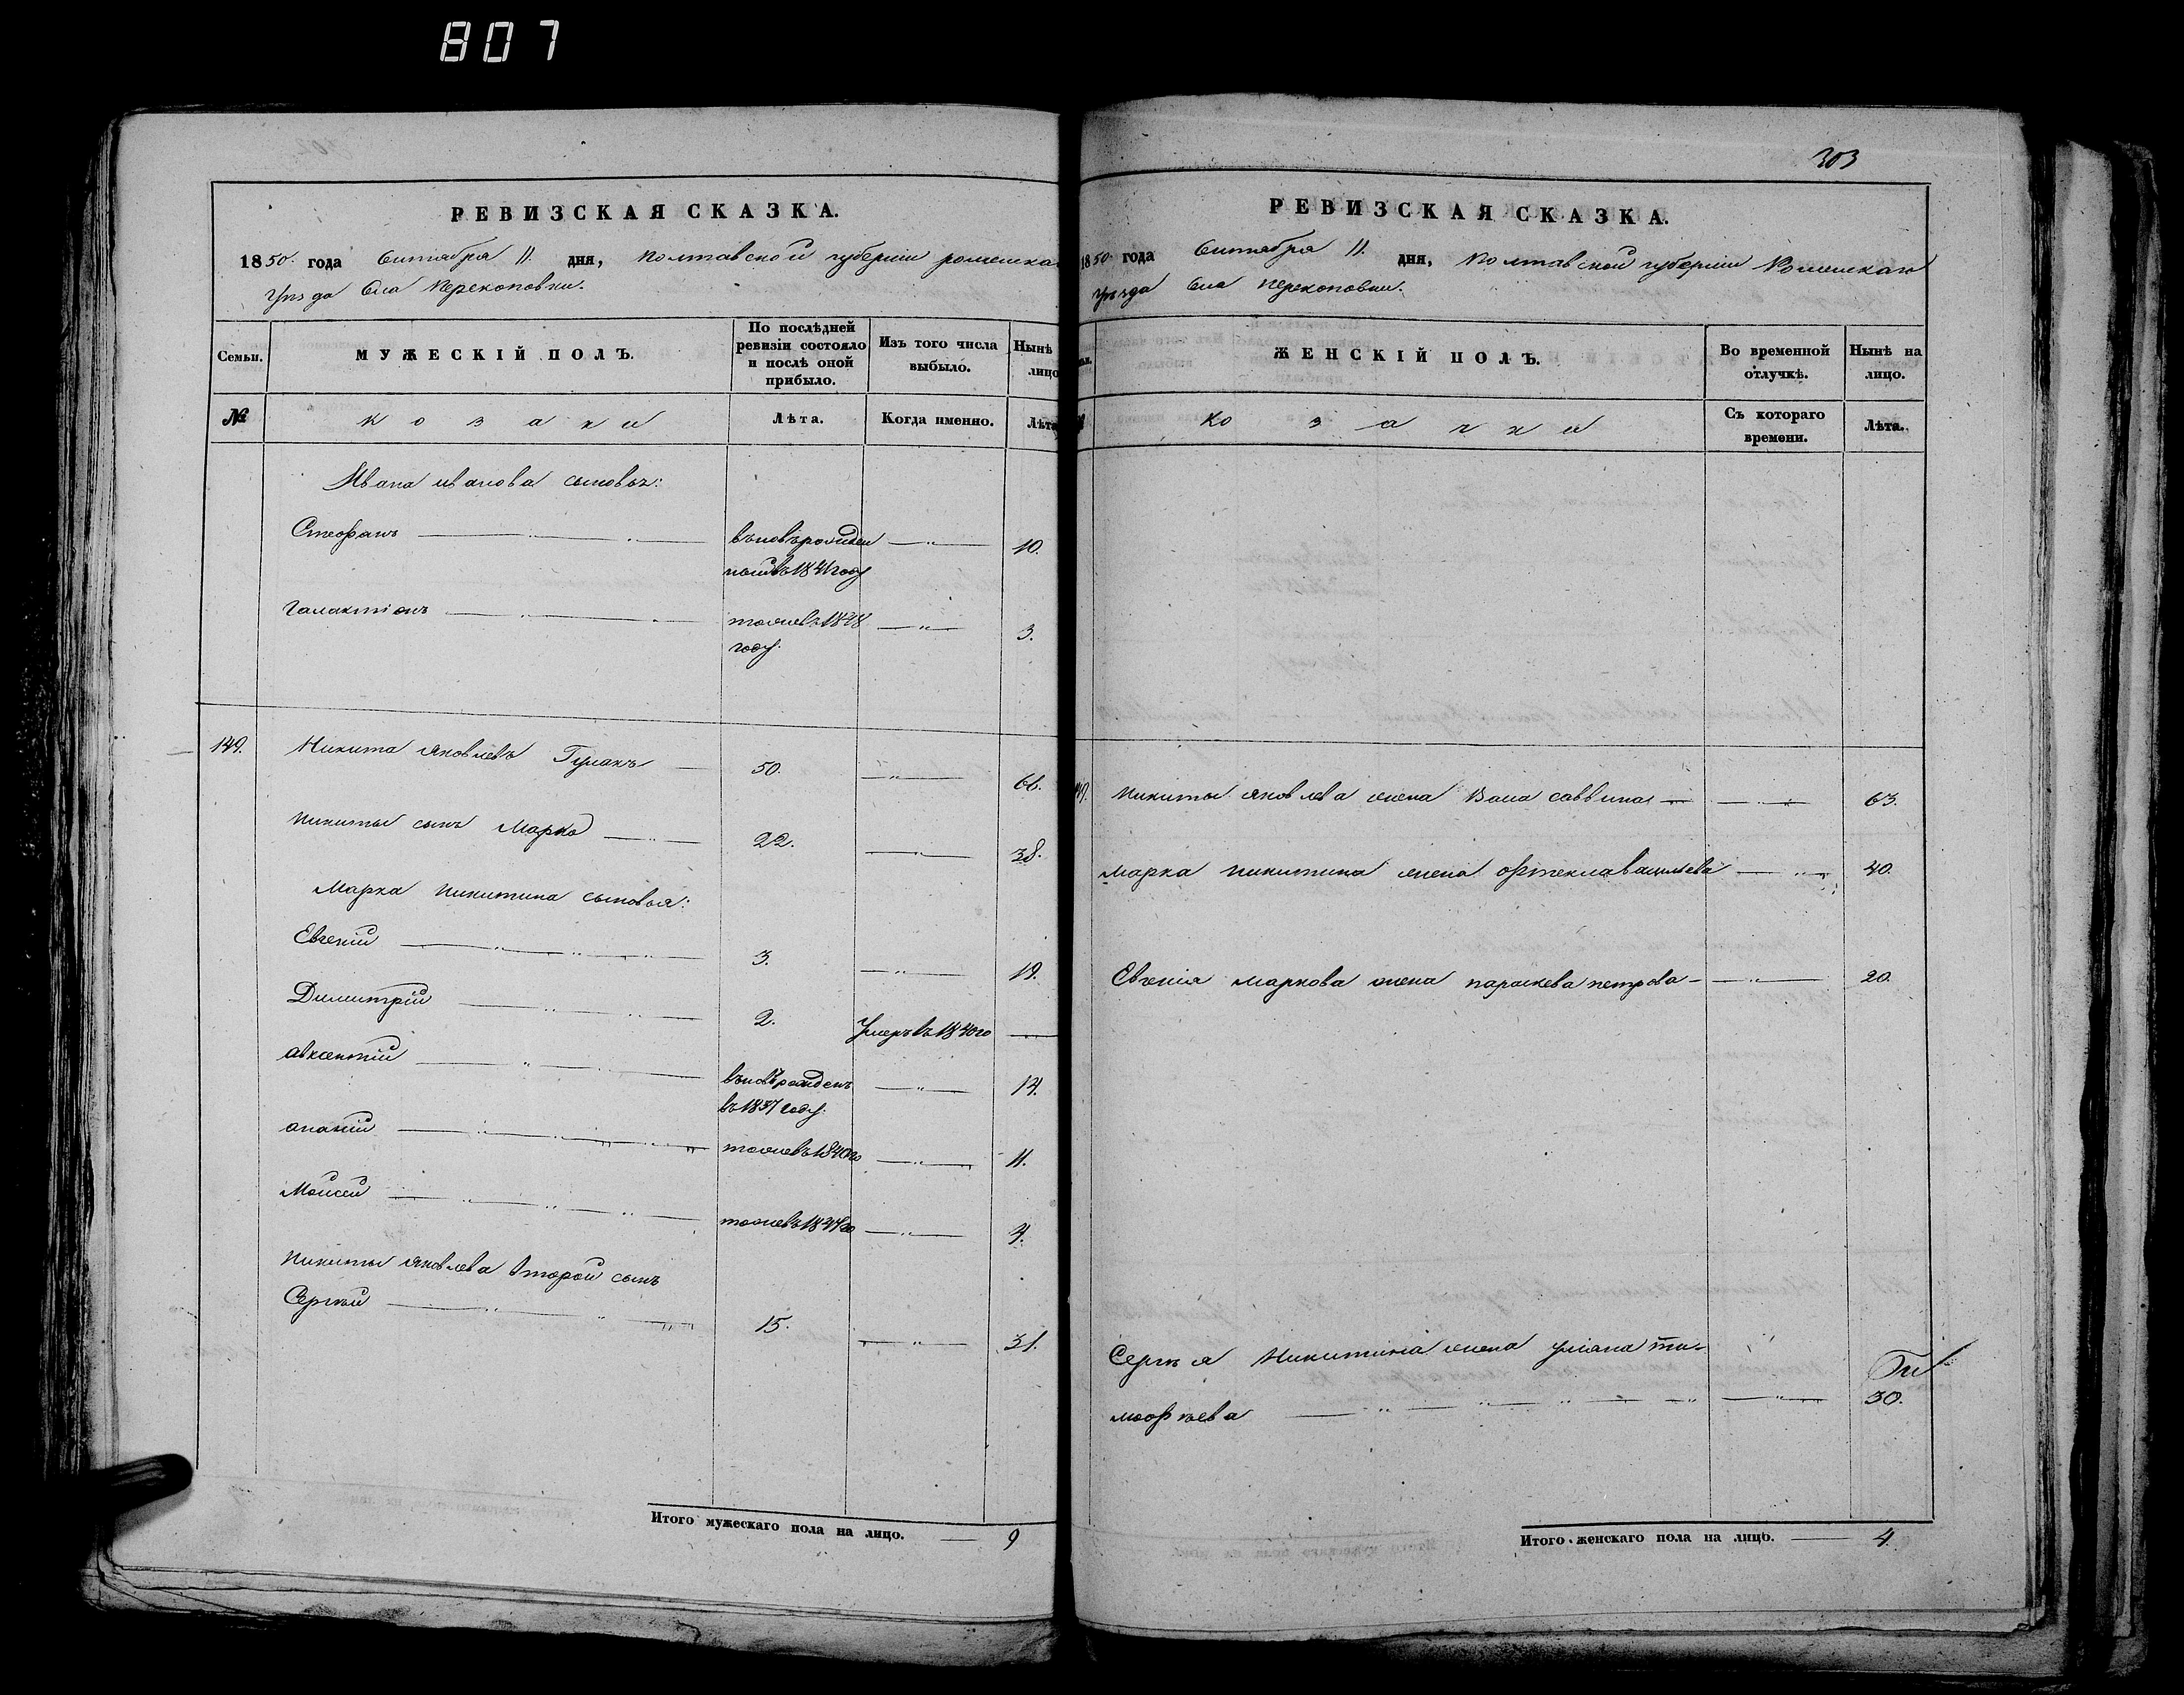 807
РЕВИЗСКАЯ СКАЗКА.
1850. года Сентября 11. дня, Полтавской губерніи ромешка
уѣзда Села Перекоповки.
Семьи.
МУЖЕСКІЙ ПОЛЪ.
По послѣдней ревизіи состояло и послѣ оной прибыло.
Изъ того числа выбыло.
Нынѣ лицо
№
козаки
Лѣта.
Когда именно.
Лѣта
Ивана иванова сыновья:
Стефанъ 10.
Галактіонъ тожъ въ 1848 3.
году.
149. Никита яковлевъ Гулакъ 50. 66.
Никиты сынъ Марко 22. 38.
Марка никитина сыновья:
Евгеній 3. 19.
Димитрій 2. Умеръ въ 1840 го
авксентій вновь рожденъ 14.
въ 1837 году.
ананій тожъ въ 1840 го 11.
Моисей тожъ въ 1847 го 4.
Никиты яковлева второй сынъ
Сергѣй 15. 31.
Итого мужескаго пола на лицо. 9
303
РЕВИЗСКАЯ СКАЗКА.
1850. года Сентября 11. дня, Полтавской губерніи Ромешкаго
уѣзда Села Перекоповки.
ЖЕНСКІЙ ПОЛЪ.
Во временной отлучкѣ.
Нынѣ на лицо.
козачки
Съ котораго времени.
Лѣта.
Никиты яковлева жена саввина 63.
Марка никитина жена васильева 40.
Евгенія маркова жена параскева петрова 20.
Сергѣя Никитина жена уліана ти-
мофѣева 30.
Итого женскаго пола на лицо. 4.